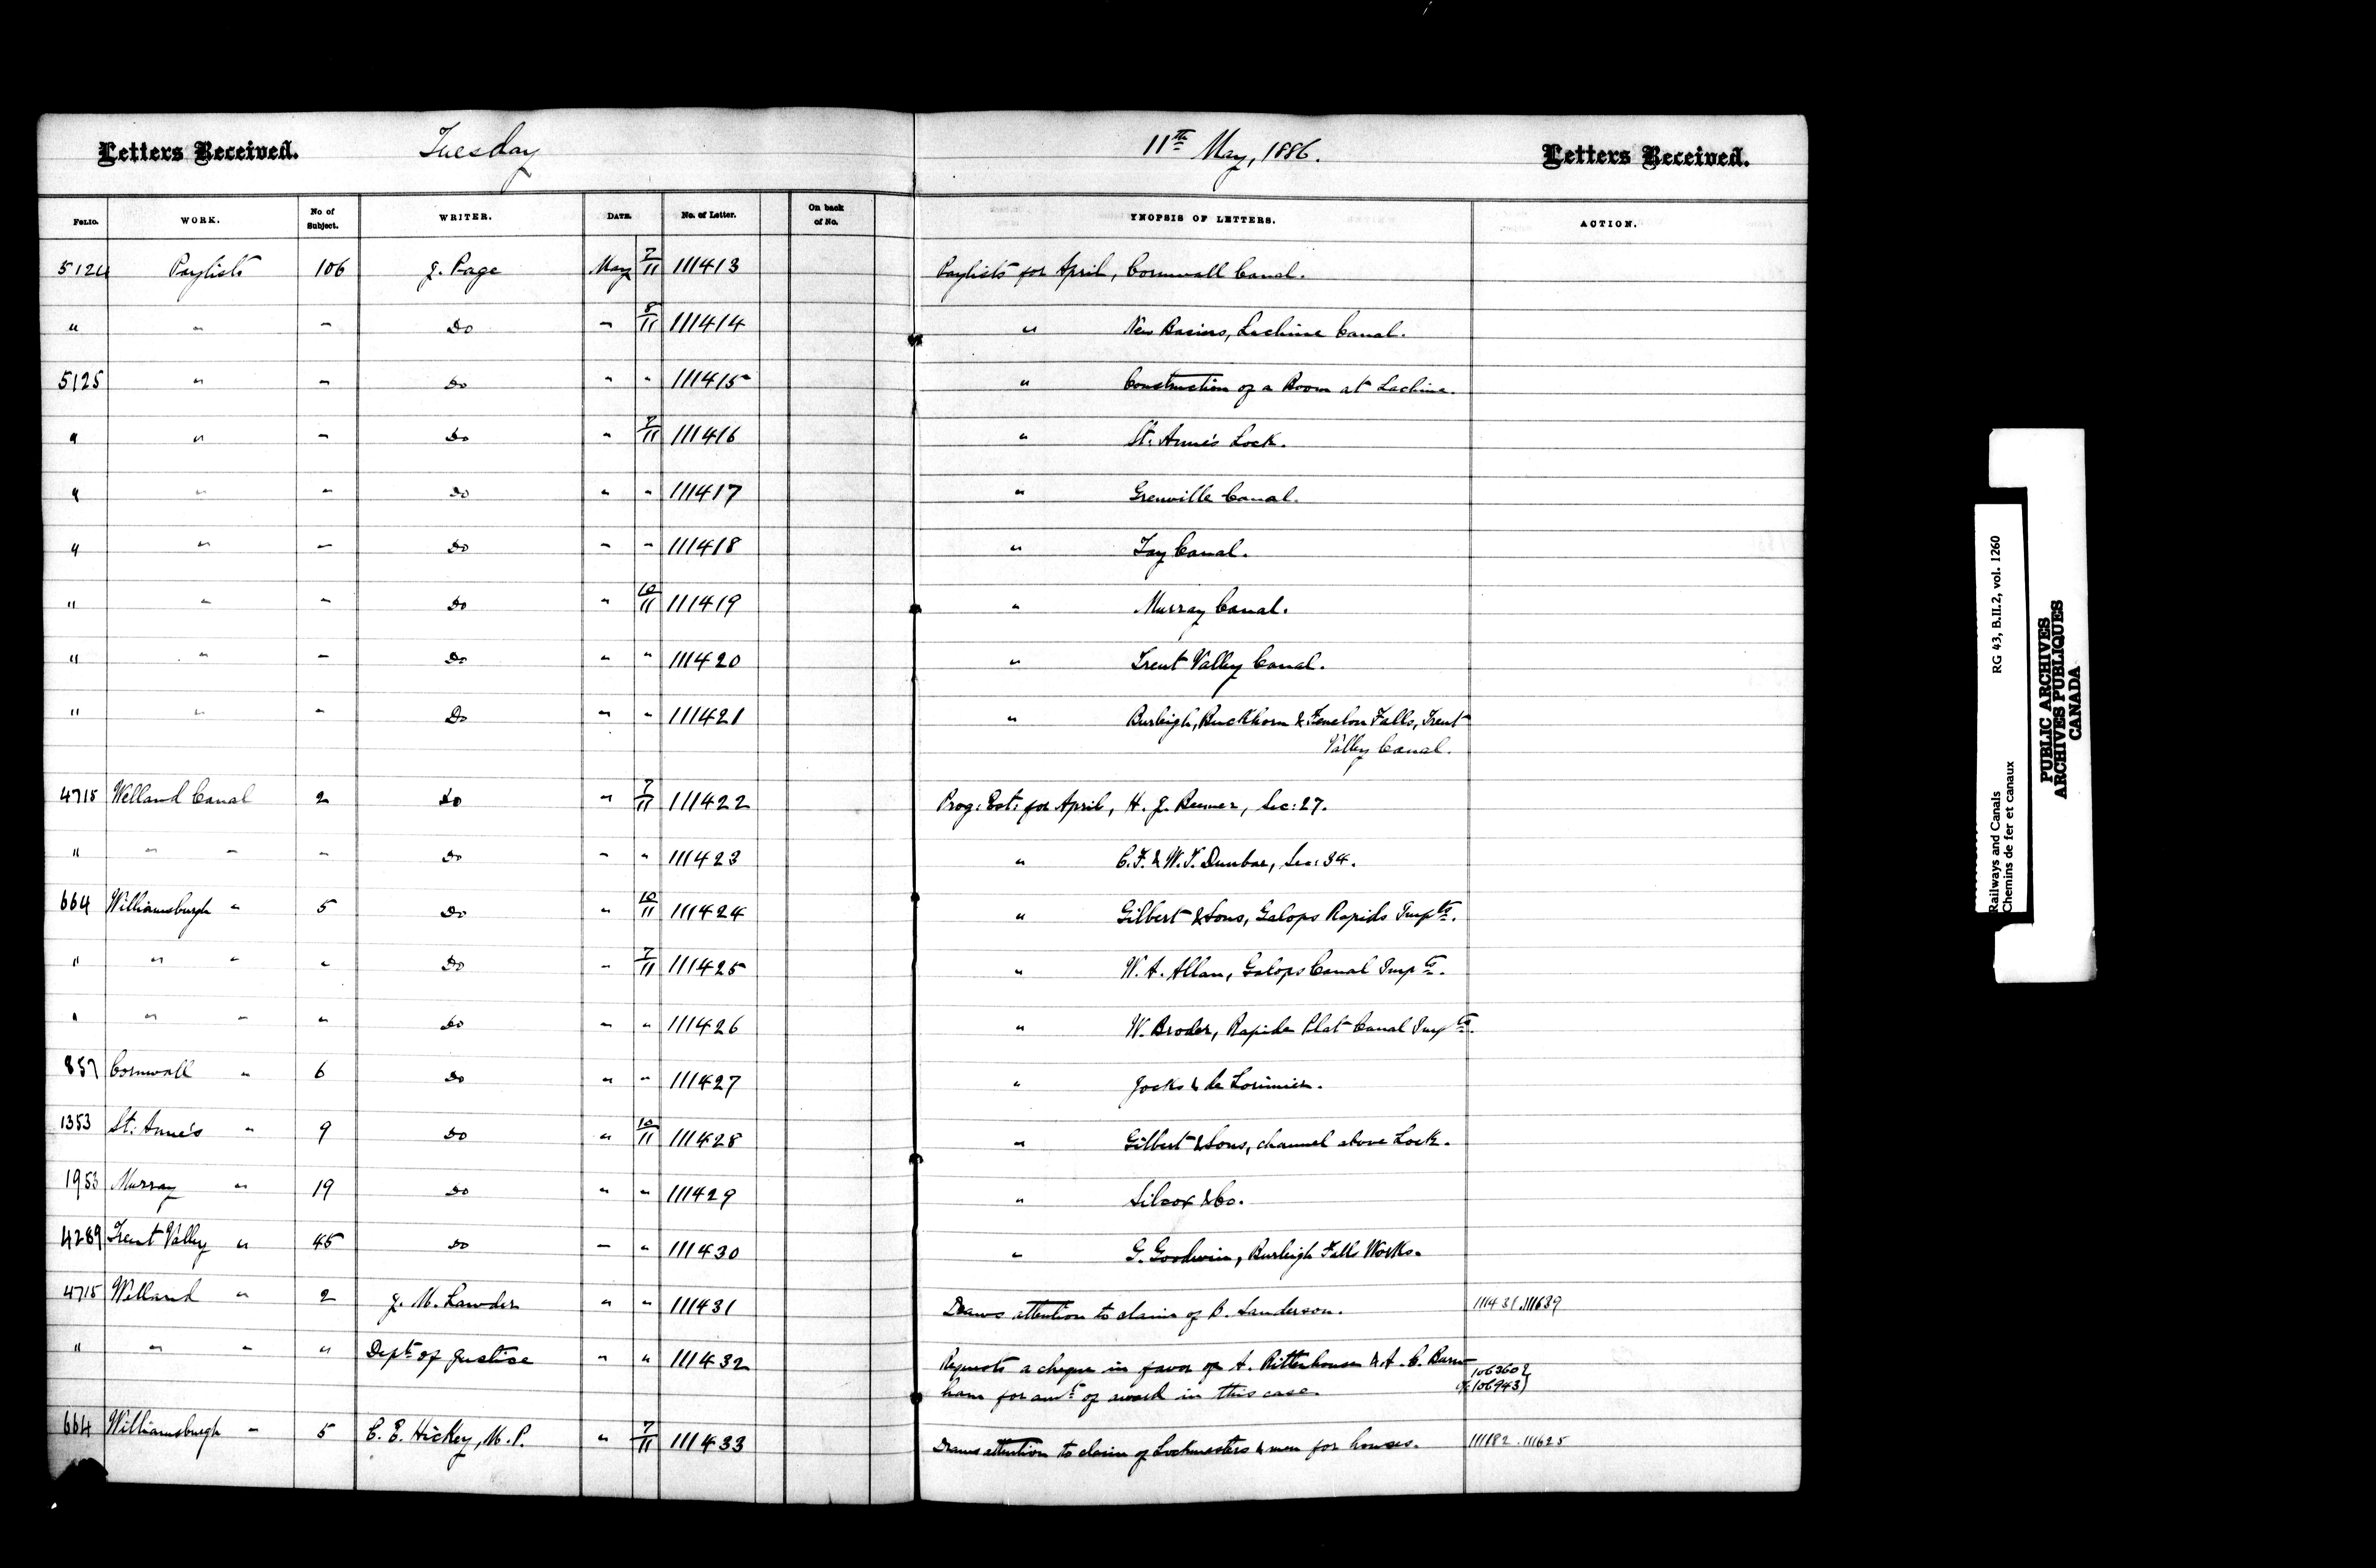 Letters Received. Tuesday 11th May, 1886. Letters Received.
FOLIO. WORK. No of Subject. WRITER. DATE. No. of Letter. On back of No. YNOPSIS OF LETTERS. ACTION.
5124 Paylists 106 J. Page May 7/11 111413 Paylists for April, Cornwall Canal.
" " " Do " 8/11 111414 " New Basins, Lachine Canal.
5125 " " Do " " 111415 " Construction of a Boom at Lachine.
" " " Do " 7/11 111416 " St. Anne's Lock.
" " " Do " " 111417 " Grenville Canal.
" " " Do " " 111418 " Tay Canal.
" " " Do " 10/11 111419 " Murray Canal.
" " " Do " " 111420 " Trent Valley Canal.
" " " Do " " 111421 " Burleigh, Buckhorn & Fenelon Falls, Trent
Valley Canal.
4715 Welland Canal 2 Do " 7/11 111422 Prog: Est: for April, H. J. Beemer, Sec: 27.
" " " " Do " " 111423 " C. F. & W. T. Dunbar, Sec: 34.
664 Williamsburgh " 5 Do " 10/11 111424 " Gilbert & Sons, Galops Rapids Impts.
" " " " Do " 7/11 111425 " W. A. Allan, Galops Canal Impts.
" " " " Do " " 111426 " W. Broder, Rapide Plat Canal Impts.
857 Cornwall " 6 Do " " 111427 " Jocks & de Lorimier.
1353 St: Anne's " 9 Do " 10/11 111428 " Gilbert & Sons, channel above Lock.
1953 Murray " 19 Do " " 111429 " Silcox & Co.
4289 Trent Valley " 45 Do " " 111430 " G. Goodwin, Burleigh Falls Works.
4715 Welland " 2 J. M. Lawder " " 111431 Draws attention to claim of B. Sanderson. 111431.111639
" " " " Dept of Justice " " 111432 Requests a cheque in favor of A. Rittenhouse & A. C. Burn- 106360}
ham for amt: of award in this case. 106943}
664 Williamsburgh " 5 C. E. Hickey, M.P. " 7/11 111433 Draws attention to claim of Lockmasters & men for houses. 111182.111625
Railways and Canals RG 43, B.II.2, vol. 1260
Chemins de fer et canaux
PUBLIC ARCHIVES
ARCHIVES PUBLIQUES
CANADA